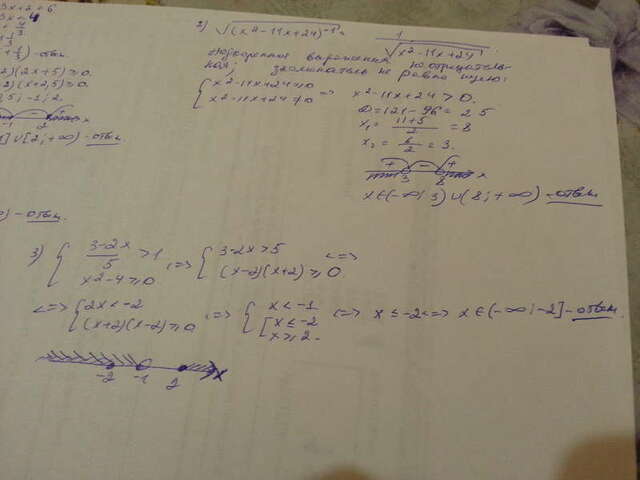 3x+2=6.
3x=4
x=4/3
1 1/3
1 1/3) - ответ.
2)(2x+5)≥0.
-2)(x+2,5)≥0.
-1 2 x
]∪[2;+∞) - ответ
) - ответ.
2) √((x²-11x+24)⁻¹) = 1/√(x²-11x+24).
Подкоренное выражение неотрицатель-
ное; знаменатель не равен нулю:
{ x²-11x+24≥0
{ x²-11x+24≠0 => x²-11x+24>0.
D=121-96=25
x₁=(11+5)/2=8
x₂=6/2=3.
+ - +
3 8 x
x∈(-∞; 3)∪(8;+∞) - ответ
3) { (3-2x)/5>1
{ x²-4≥0 <=> { 3-2x>5
{ (x-2)(x+2)≥0. <=>
<=> { 2x<-2
{ (x+2)(x-2)≥0 <=> { x<-1
{ [ x≤-2
[ x≥2. <=> x≤-2 <=> x∈(-∞;-2] - ответ.
-2 -1 2 x